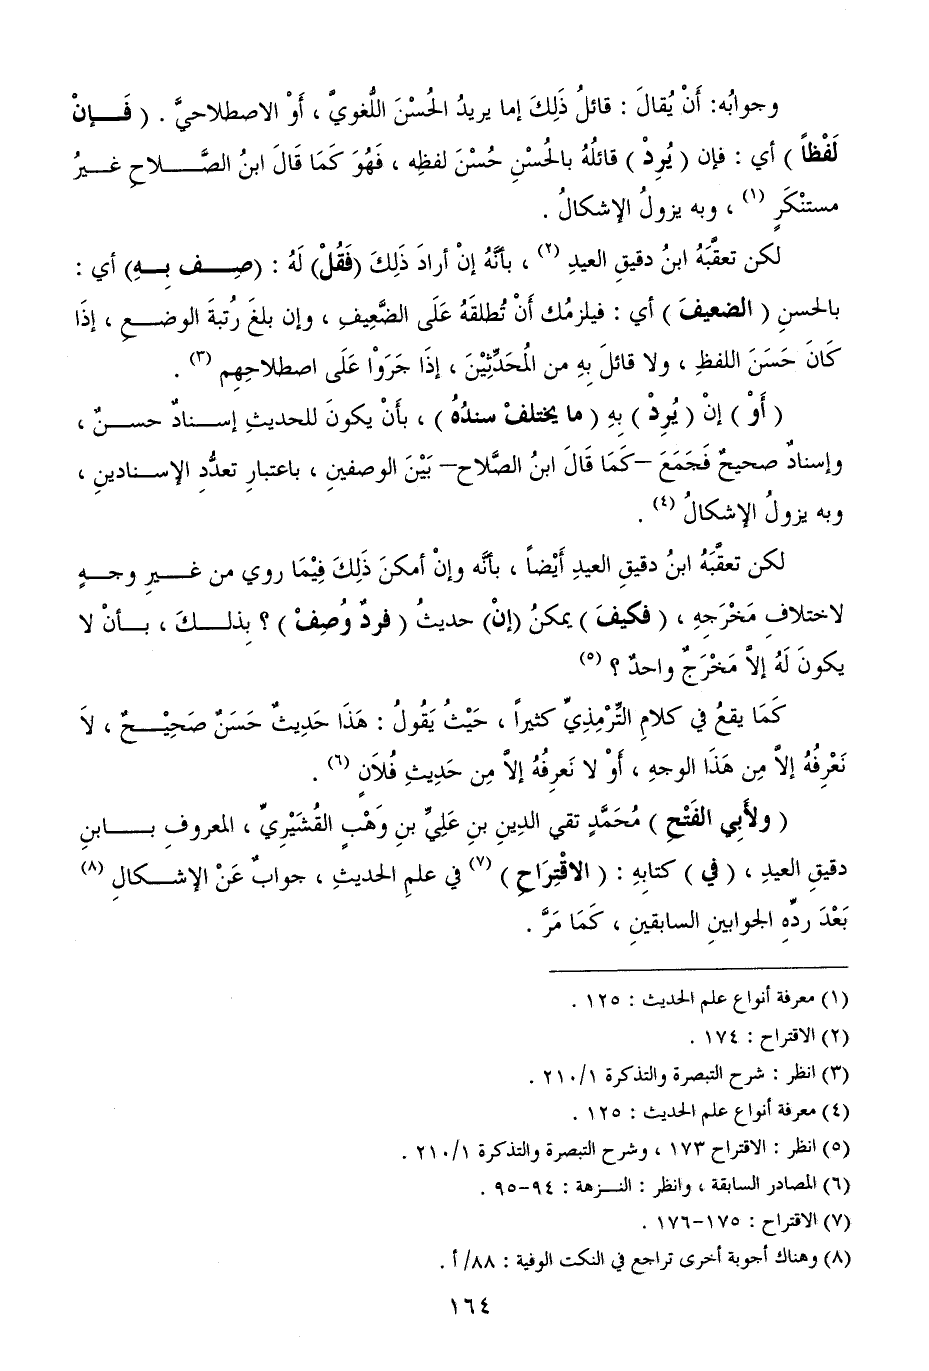 وجوابُه: أَنْ يُقالَ : قائلُ ذَلِكَ إما يريدُ الحُسْنَ اللُّغويَّ ، أَوْ الاصطلاحيَّ . ( فَإنْ
لَفْظاً ) أي : فإن ( يُرِدْ ) قائلُهُ بالحُسْنِ حُسْنَ لفظِه ، فَهُوَ كَمَا قَالَ ابنُ الصَّلاحِ غيرُ
مستنْكَرٍ (١) ، وبه يزولُ الإشكالُ .
لكن تعقَّبَهُ ابنُ دقيقِ العيدِ (٢) ، بأنَّهُ إنْ أرادَ ذَلِكَ (فَقُلْ) لَهُ : (صِف بِهِ) أي :
بالحسنِ ( الضعيفَ ) أي : فيلزمُك أَنْ تُطلقَهُ عَلَى الضَّعِيفِ ، وإن بلغَ رُتبةَ الوضعِ ، إذَا
كَانَ حَسَنَ اللفظِ ، ولا قائلَ بِهِ من المُحَدِّثِيْنَ ، إذَا جَرَوْا عَلَى اصطلاحِهِم (٣) .
( أَوْ ) إنْ ( يُرِدْ ) بِهِ ( ما يختلفْ سندُهُ ) ، بأنْ يكونَ للحديثِ إسنادٌ حسنٌ ،
وإسنادٌ صحيحٌ فَجَمَعَ –كَمَا قَالَ ابنُ الصَّلاح– بَيْنَ الوصفينِ ، باعتبارِ تعدُّدِ الإسنادينِ ،
وبه يزولُ الإشكالُ (٤) .
لكن تعقَّبَهُ ابنُ دقيقِ العيدِ أَيْضاً ، بأنَّه وإنْ أمكنَ ذَلِكَ فِيْمَا روي من غيرِ وجهٍ
لاختلافِ مَخْرَجِهِ ، ( فكيفَ ) يمكنُ (إنْ) حديثُ ( فردٌ وُصِفْ ) ؟ بذلكَ ، بأنْ لا
يكونَ لَهُ إلاَّ مَخْرَجٌ واحدٌ ؟ (٥)
كَمَا يقعُ في كلامِ التِّرْمِذِيِّ كثيراً ، حَيْثُ يَقُولُ : هَذَا حَدِيثٌ حَسَنٌ صَحِيْحٌ ، لاَ
نَعْرِفُهُ إلاَّ مِن هَذَا الوجهِ ، أَوْ لا نَعرِفُهُ إلاَّ مِن حَدِيثِ فُلاَنٍ (٦) .
( ولأَبِي الفَتْحِ ) مُحَمَّدٍ تقي الدينِ بنِ عَلِيِّ بنِ وَهْبٍ القُشَيْرِيِّ ، المعروفِ بابنِ
دقيقِ العيدِ ، ( في ) كتابِهِ : ( الاقْتِرَاحِ ) (٧) في علمِ الحديثِ ، جوابٌ عَنْ الإشكالِ (٨)
بَعْدَ ردِّهِ الجوابينِ السابقينِ ، كَمَا مَرَّ .
(١) معرفة أنواع علم الحديث : ١٢٥ .
(٢) الاقتراح : ١٧٤ .
(٣) انظر : شرح التبصرة والتذكرة ٢١٠/١ .
(٤) معرفة أنواع علم الحديث : ١٢٥ .
(٥) انظر : الاقتراح ١٧٣ ، وشرح التبصرة والتذكرة ٢١٠/١ .
(٦) المصادر السابقة ، وانظر : النزهة : ٩٤-٩٥ .
(٧) الاقتراح : ١٧٥-١٧٦ .
(٨) وهناك أجوبة أخرى تراجع في النكت الوفية : ٨٨/ أ .
١٦٤